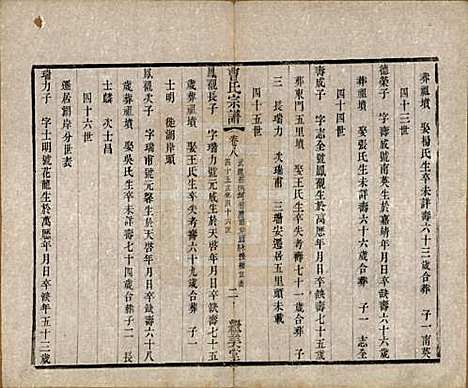 葬祖墳 娶楊氏生卒未詳壽六十三歲合葬 子一南英
四十三世
德榮子 字壽威號南英生於嘉靖年月日卒缺壽六十三歲
葬祖墳 娶張氏生卒未詳壽六十六歲合葬 子一志全
四十四世
壽威子 字志全號鳳觀生於萬歷年月日卒缺壽七十五歲
葬東門五里墳 娶王氏生卒失考壽七十一歲合葬 子
三 長瑞力 次瑞甫 三瑞安遷居五里頭未載
四十五世
曹氏宗譜 卷八
二 繩美堂
鳳觀長子 字瑞力號元 生於天啓年月日卒缺壽七十五
歲葬祖墳 娶王氏生卒失考壽六十九歲合葬 子一
士明 徙湖岸頭
鳳觀次子 字瑞甫號元 生於天啓年月日卒缺壽六十八
歲葬祖墳 娶吳氏生卒未詳壽七十四歲合葬 子二長
士麟 次士昌
四十六世
遷居湖岸分世表
瑞力子 字士明號花龍生於萬歷年月日卒缺壽五十三歲